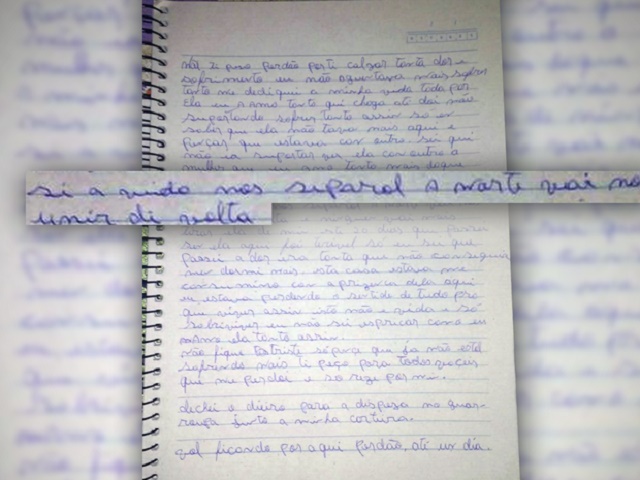 perdão por ti calzar tanta dor e
sofrimento eu não aguentava mais sofrer
tanto me dediquei a minha vida toda por
Ela eu amo tanto que choga até doi mas
suportando sofrer tanto assim só em
sabir que ela não tava mais aqui e
pençar que estava con outro sei que
não ia suportar ver ela con outro a
mulher que eu amo tanto mais do que
si a vida nos separol a morti vai no
unir di volta
ela aqui foi só eu sei que
passei a dor era tanta que não conseguia
nem dormi mais. esta casa estava me
consumino con a prizença dela aqui
eu estava perdendo o sentido de tudo pra
que viver assin isto não e vida e só
sobriviver eu não sei espricar como eu
amo ela tanto assin.
não fique triste sópura que ja não está
sofrendo mais ti peço para todos voceis
qui me perdoi e so reze por min.
dechei o dieiro para a dispeza no guar-
roupa junto a minha corteira.
vol ficando por aqui perdão, até un dia.